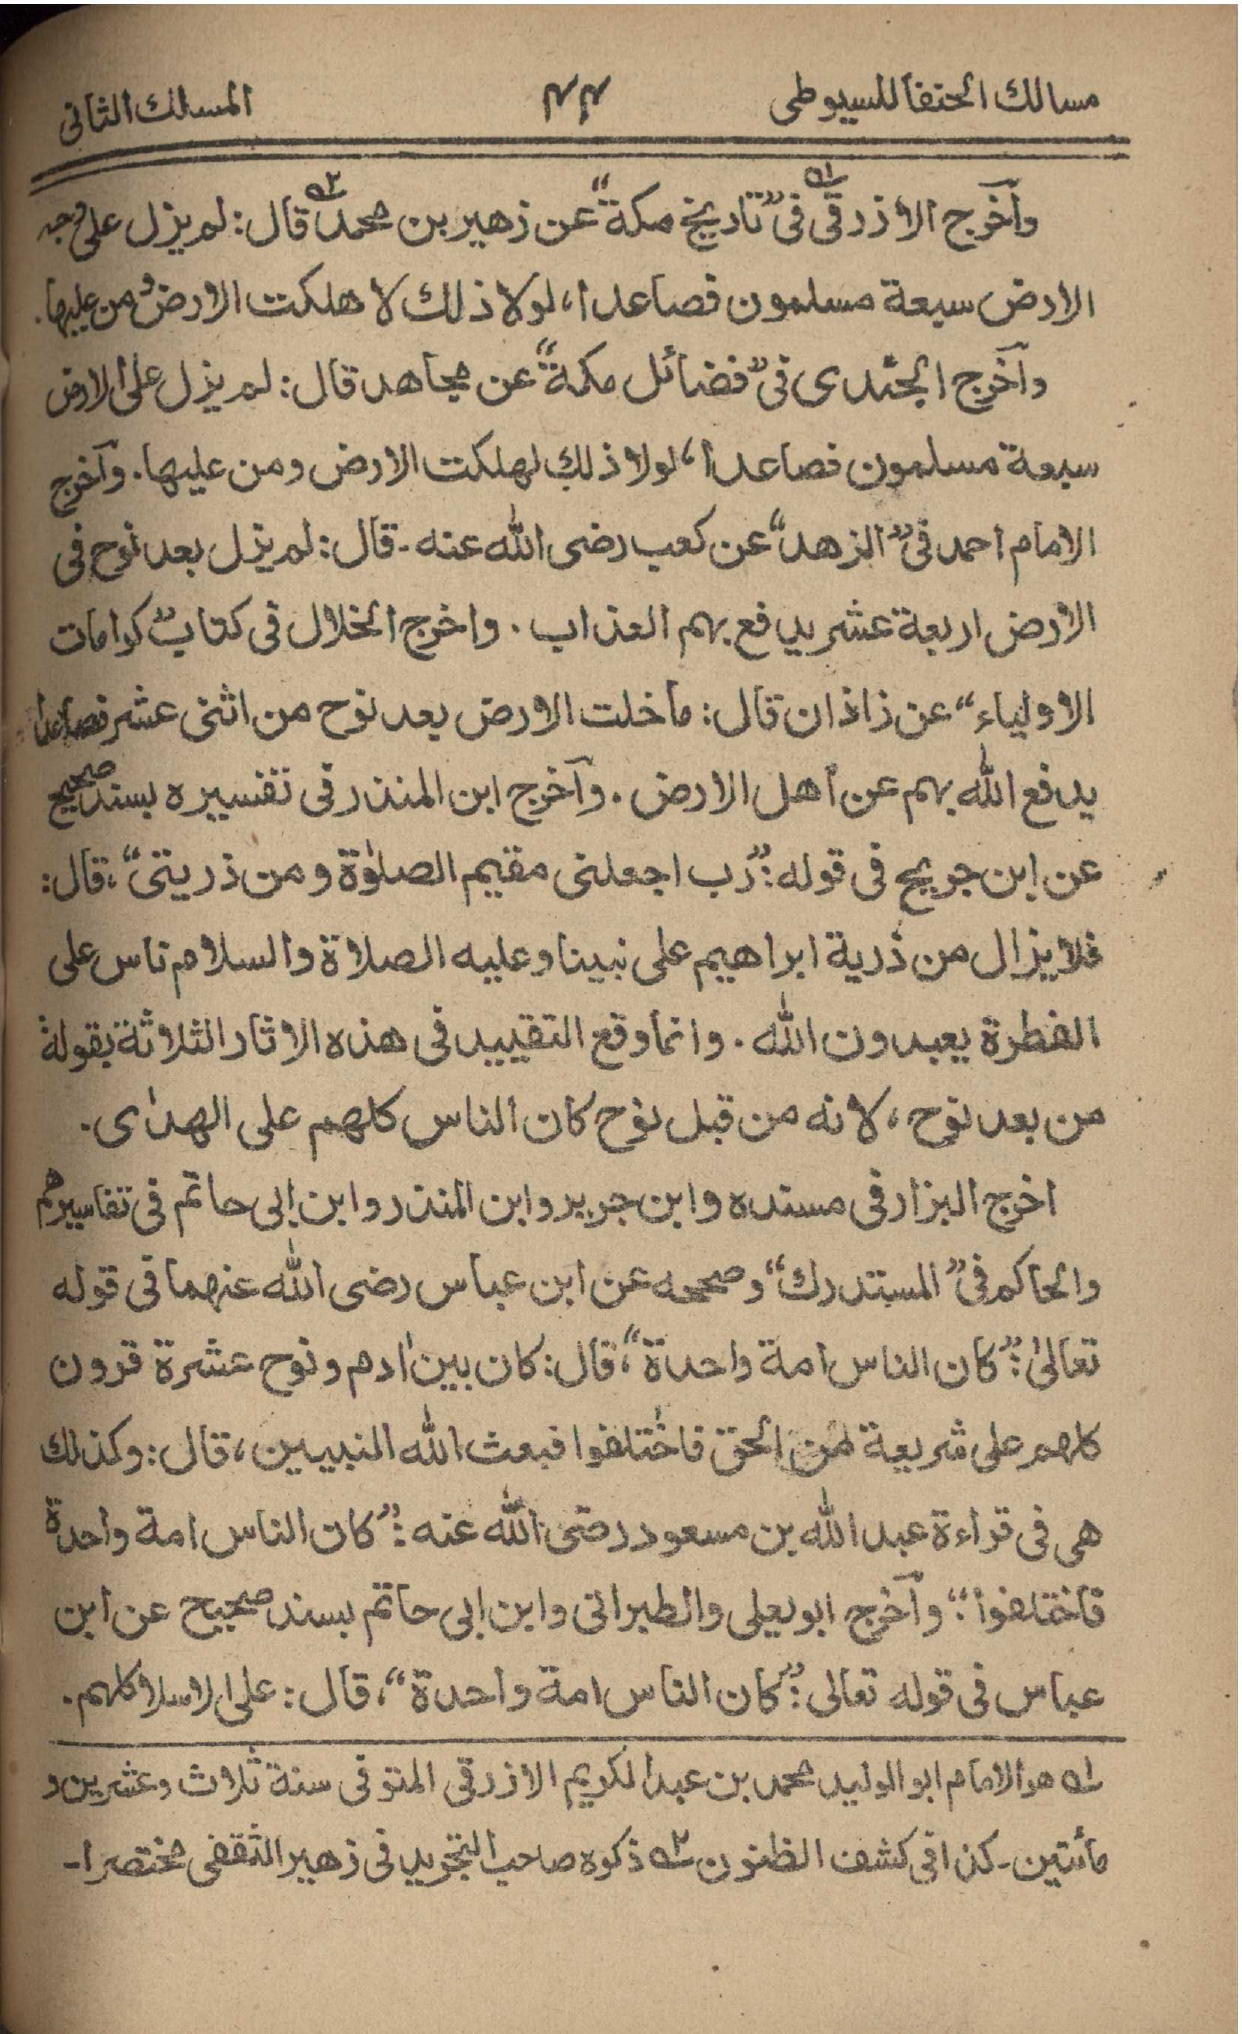 مسالك الحنفا للسيوطى ٤٤ المسلك الثانى
وآخرج الازرقى ؎۱ فى ”تاريخ مكة“ عن زهير بن محمد ؎۲ قال: لم يزل على وجه
الارض سبعة مسلمون فصاعدا، لولا ذلك لاهلكت الارض ومن عليها.
وآخرج الجندى فى ”فضائل مكة“ عن مجاهد قال: لم يزل على الارض
سبعة مسلمون فصاعدا، لولا ذلك لهلكت الارض ومن عليها. وآخرج
الامام احمد فى ”الزهد“ عن كعب رضى الله عنه - قال: لم يزل بعد نوح فى
الارض اربعة عشر يدفع بهم العذاب. واخرج الخلال فى كتاب ”كرامات
الاولياء“ عن زاذان قال: ماخلت الارض بعد نوح من اثنى عشر فصاعدا
يدفع الله بهم عن أهل الارض. وآخرج ابن المنذر فى تفسيره بسند صحيح
عن ابن جريج فى قوله: ”رب اجعلنى مقيم الصلوٰة ومن ذريتى“، قال:
فلا يزال من ذرية ابراهيم على نبينا وعليه الصلاة والسلام ناس على
الفطرة يعبدون الله. وانما وقع التقييد فى هذه الاثار الثلاثة بقوله
من بعد نوح، لانه من قبل نوح كان الناس كلهم على الهدٰى.
اخرج البزار فى مسنده وابن جرير وابن المنذر وابن ابى حاتم فى تفاسيرهم
والحاكم فى ”المستدرك“ وصححه عن ابن عباس رضى الله عنهما فى قوله
تعالىٰ: ”كان الناس امة واحدة“، قال: كان بين اٰدم ونوح عشرة قرون
كلهم على شريعة من الحق فاختلفوا فبعث الله النبيين، قال: وكذلك
هى فى قراءة عبد الله بن مسعود رضى الله عنه: ”كان الناس امة واحدة
فاختلفوا“. وآخرج ابو يعلى والطبرانى وابن ابى حاتم بسند صحيح عن ابن
عباس فى قوله تعالى: ”كان الناس امة واحدة“، قال: على الاسلام كلهم.
؎۱ هو الامام ابو الوليد محمد بن عبد الكريم الازرقى المتوفى سنة ثلاث وعشرين و
مأتين - كذا فى كشف الظنون ؎۲ ذكره صاحب التجريد فى زهير الثقفى مختصرا -